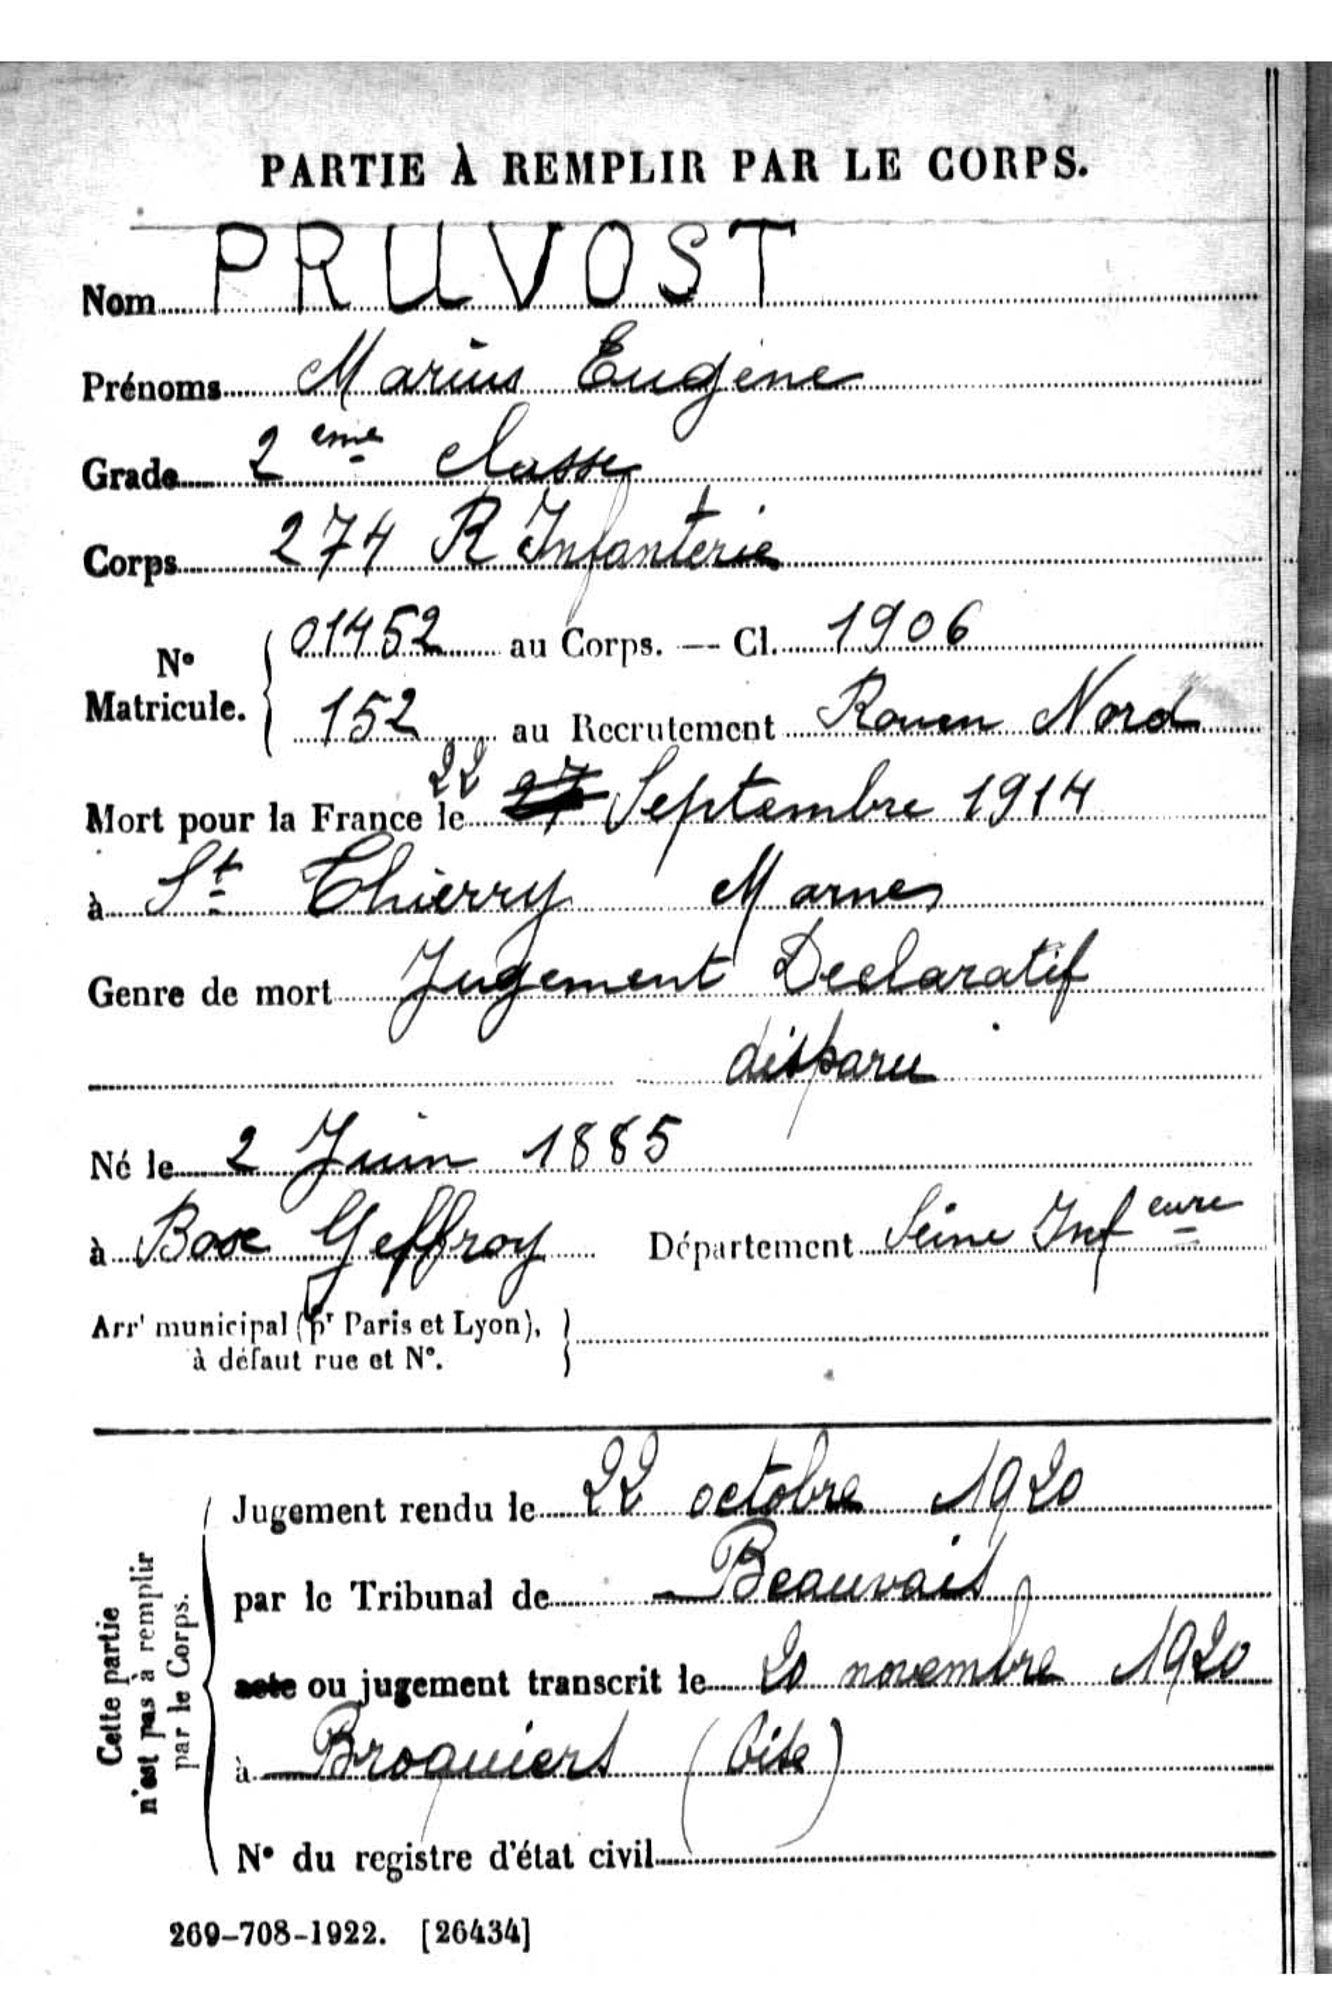 PARTIE À REMPLIR PAR LE CORPS.
Nom PRUVOST
Prénoms Marius Eugène
Grade 2 eme classe
Corps 274 R Infanterie
N° Matricule. 01452 au Corps. — Cl. 1906
152 au Recrutement Rouen Nord
22
Mort pour la France le 27 Septembre 1914
à St Thierry Marnes
Genre de mort Jugement Declaratif
disparu
Né le 2 Juin 1885
à Bosc Geffroy Département Seine Inf eure
Arrt municipal (pr Paris et Lyon),
à défaut rue et N°.
Cette partie
n'est pas à remplir
par le Corps.
Jugement rendu le 22 octobre 1920
par le Tribunal de Beauvais
acte ou jugement transcrit le 20 novembre 1920
à Broquiers (Oise)
N° du registre d'état civil
269-708-1922. [26434]